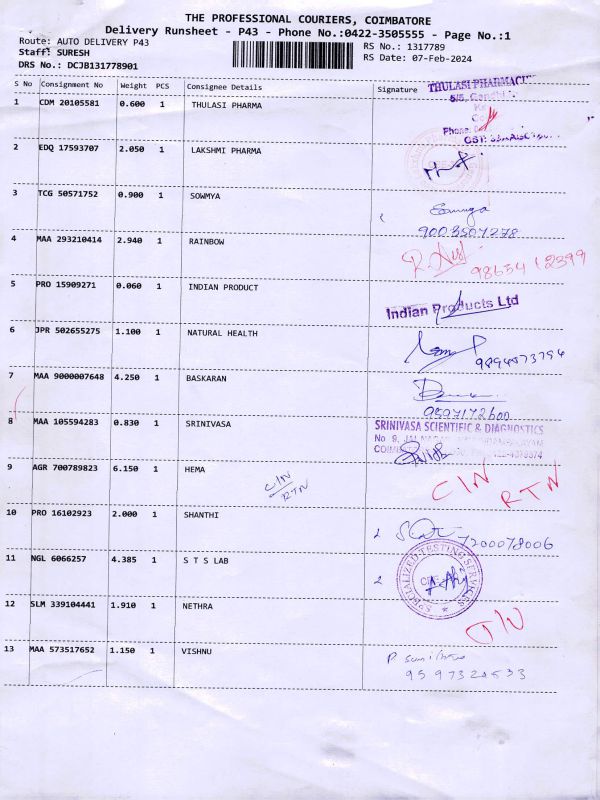 THE PROFESSIONAL COURIERS, COIMBATORE
Delivery Runsheet - P43 - Phone No.:0422-3505555 - Page No.:1
Route: AUTO DELIVERY P43 RS No.: 1317789
Staff: SURESH RS Date: 07-Feb-2024
DRS No.: DCJB131778901
S No Consignment No Weight PCS Consignee Details Signature
THULASI PHARMACU
1 CDM 20105581 0.600 1 THULASI PHARMA
Phone:
GST:
2 EDQ 17593707 2.050 1 LAKSHMI PHARMA
3 TCG 50571752 0.900 1 SOWMYA
9003507278
4 MAA 293210414 2.940 1 RAINBOW
9865412399
5 PRO 15909271 0.060 1 INDIAN PRODUCT
Indian Products Ltd
6 JPR 502655275 1.100 1 NATURAL HEALTH
9894573794
7 MAA 9000007648 4.250 1 BASKARAN
9597172600
8 MAA 105594283 0.830 1 SRINIVASA SRINIVASA SCIENTIFIC & DIAGNOSTICS
No 9,
9 AGR 700789823 6.150 1 HEMA C/N RTN C/N RTN
10 PRO 16102923 2.000 1 SHANTHI
7200078006
11 NGL 6066257 4.385 1 S T S LAB
SPECIALIZED TESTING SERVICES
CBE
12 SLM 339104441 1.910 1 NETHRA
13 MAA 573517652 1.150 1 VISHNU